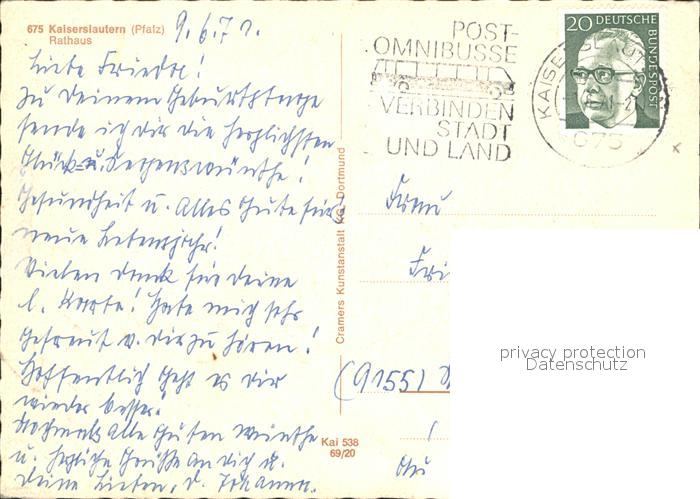 675 Kaiserslautern (Pfalz)
Rathaus
9.6.72.
Liebe Friedel!
Zu Deinem Geburtstage
sende ich dir die herzlichsten
Glück- u. Segenswünsche!
Gesundheit u. Alles Gute für's
neue Lebensjahr!
Vielen Dank für deine
l. Karte! Habe mich sehr
gefreut v. dir zu hören!
Hoffentlich geht es dir
wieder besser!
Nochmals alle guten Wünsche
u. herzliche Grüße an dich u.
deine Lieben, d. Johanna.
POST-
OMNIBUSSE
VERBINDEN
STADT
UND LAND
20 DEUTSCHE
BUNDESPOST
675
Cramers Kunstanstalt KG, Dortmund
Frau
Fri
(9155)
Kai 538
69/20
privacy protection
Datenschutz